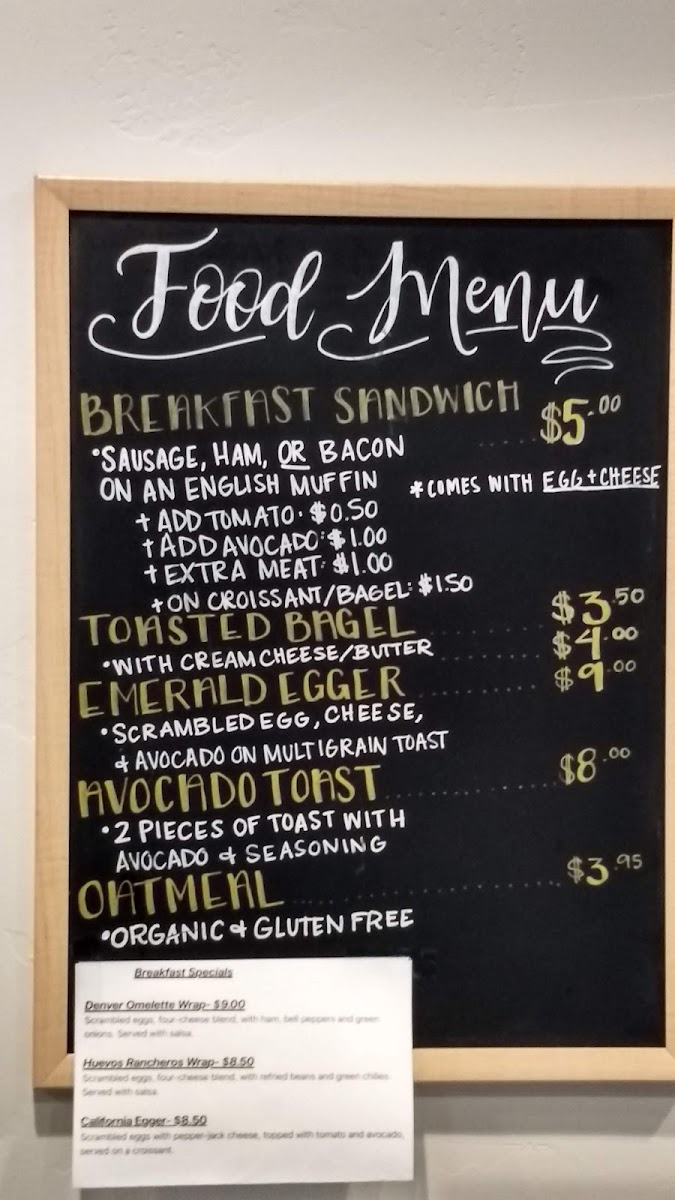 Food Menu
BREAKFAST SANDWICH ..... $5.00
•SAUSAGE, HAM, OR BACON
ON AN ENGLISH MUFFIN *COMES WITH EGG+CHEESE
+ ADD TOMATO: $0.50
+ ADD AVOCADO: $1.00
+ EXTRA MEAT: $1.00
+ ON CROISSANT/BAGEL: $1.50
TOASTED BAGEL ............ $3.50
•WITH CREAM CHEESE/BUTTER ............ $4.00
EMERALD EGGER ............ $9.00
•SCRAMBLED EGG, CHEESE,
& AVOCADO ON MULTIGRAIN TOAST
AVOCADO TOAST ............ $8.00
•2 PIECES OF TOAST WITH
AVOCADO & SEASONING
OATMEAL ............ $3.95
•ORGANIC & GLUTEN FREE
Breakfast Specials
Denver Omelette Wrap- $9.00
Scrambled eggs, four-cheese blend, with ham, bell peppers and green
onions. Served with salsa.
Huevos Rancheros Wrap- $8.50
Scrambled eggs, four-cheese blend, with refried beans and green chilies.
Served with salsa.
California Egger- $8.50
Scrambled eggs with pepper-jack cheese, topped with tomato and avocado,
served on a croissant.